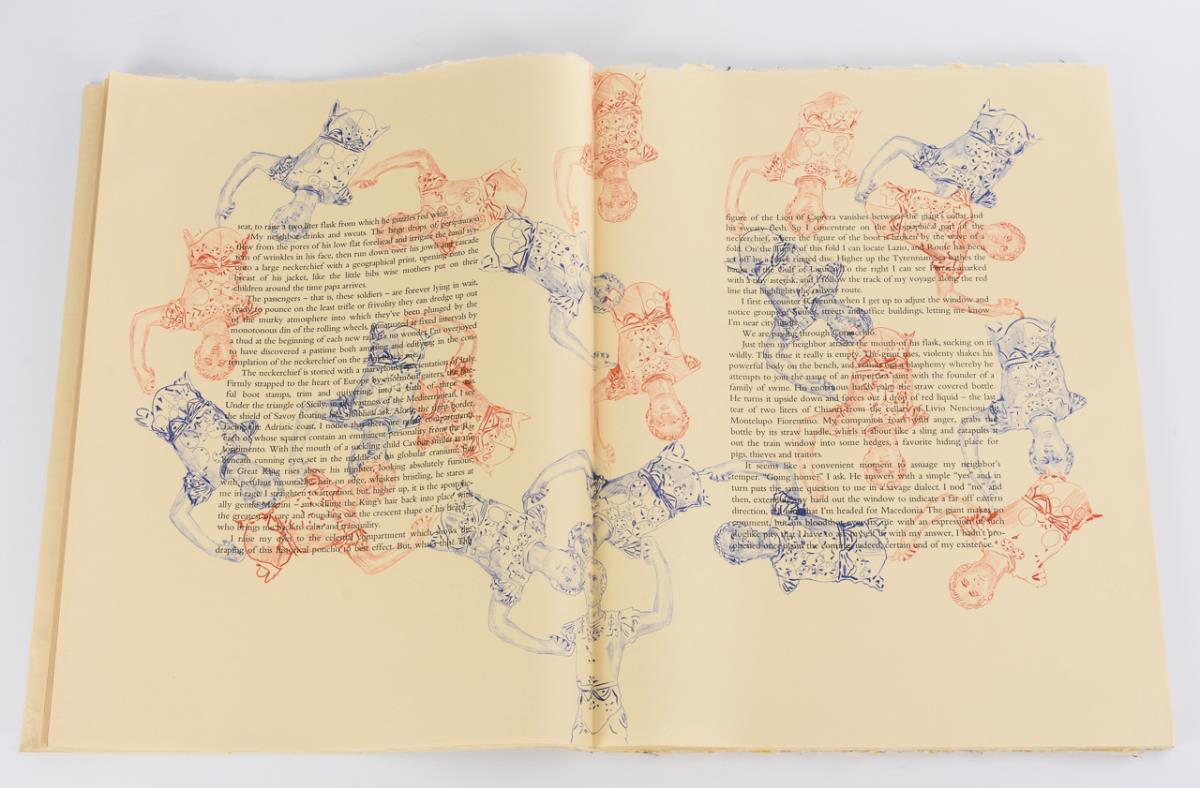 seat, to raise a two liter flask from which he guzzles red wine.
My neighbor drinks and sweats. The large drops of perspiration
flow from the pores of his low flat forehead and irrigate the canal sys-
tem of wrinkles in his face, then run down over his jowls and cascade
onto a large neckerchief with a geographical print, opening onto the
breast of his jacket, like the little bibs wise mothers put on their
children around the time papa arrives.
The passengers – that is, these soldiers – are forever lying in wait,
ready to pounce on the least trifle or frivolity they can dredge up out
of the murky atmosphere into which they've been plunged by the
monotonous din of the rolling wheels, punctuated at fixed intervals by
thud at the beginning of each new rail. It's no wonder I'm overjoyed
to have discovered a pastime both amusing and edifying in the con-
templation of the neckerchief on the giant
The neckerchief is storied with a marvelous representation of Italy.
Firmly strapped to the heart of Europe by enormous gaiters, the
ful boot stamps, trim and quivering, into a bath of three seas.
Under the triangle of Sicily, in the vastness of the Mediterranean, I see
the shield of Savoy floating like a biblical ark. Along the right border,
facing the Adriatic coast, I notice that there are compartments,
each of whose squares contain an eminent personality from the Ris-
orgimento. With the mouth of a suckling child Cavour smiles at me
beneath cunning eyes set in the middle of his globular cranium.
the Great King rises above his minister, looking absolutely furious,
with petulant mustache, hair on edge, whiskers bristling, he stares at
me in rage. I straighten to attention, but, higher up, it is the
ally gentle Mazzini – unlocking the King's hair back into place with
the greatest of care and rounding out the crescent shape of his beard,
who brings me back to calm and tranquility.
I raise my eyes to the celestial compartment which shows the
draping of this historical poncho to best effect. But, what's this! The
figure of the Lion of Caprera vanishes between the giant's collar and
his sweaty flesh. So I concentrate on the geographical part of the
neckerchief, where the figure of the boot is broken by the wave of a
fold. On the of this fold I can locate Lazio, and Rome has been
set off by a ringed disc. Higher up the Tyrennian Sea bathes the
banks of the Gulf of Liguria. To the right I can see marked
with a tiny asterisk, and I follow the track of my voyage along the red
line that highlights the railway route.
I first encounter when I get up to adjust the window and
notice groups of houses, streets and office buildings, letting me know
I'm near city limits.
We are passing through
Just then my neighbor attacks the mouth of his flask, sucking on it
wildly. This time it really is empty. The giant rises, violently shakes his
powerful body on the bench, and vomits out a blasphemy whereby he
attempts to join the name of an important saint with the founder of a
family of swine. His enormous hands palm the straw covered bottle.
He turns it upside down and forces out a drop of red liquid – the last
tear of two liters of Chianti from the cellars of Livio Nencioni of
Montelupo Fiorentino. My companion foars with anger, grabs the
bottle by its straw handle, whirls it about like a sling and catapults it
out the train window into some hedges, a favorite hiding place for
pigs, thieves and traitors.
It seems like a convenient moment to assuage my neighbor's
temper. "Going home?" I ask. He answers with a simple "yes" and in
turn puts the same question to me in a savage dialect. I nod "no" and
then, extending my hand out the window to indicate a far off eastern
direction, that I'm headed for Macedonia. The giant makes no
comment, but his bloodshot eyes fix me with an expression of such
doglike pity that I have to ask myself if, with my answer, I hadn't pro-
phesied once again the coming, indeed, certain end of my existence."